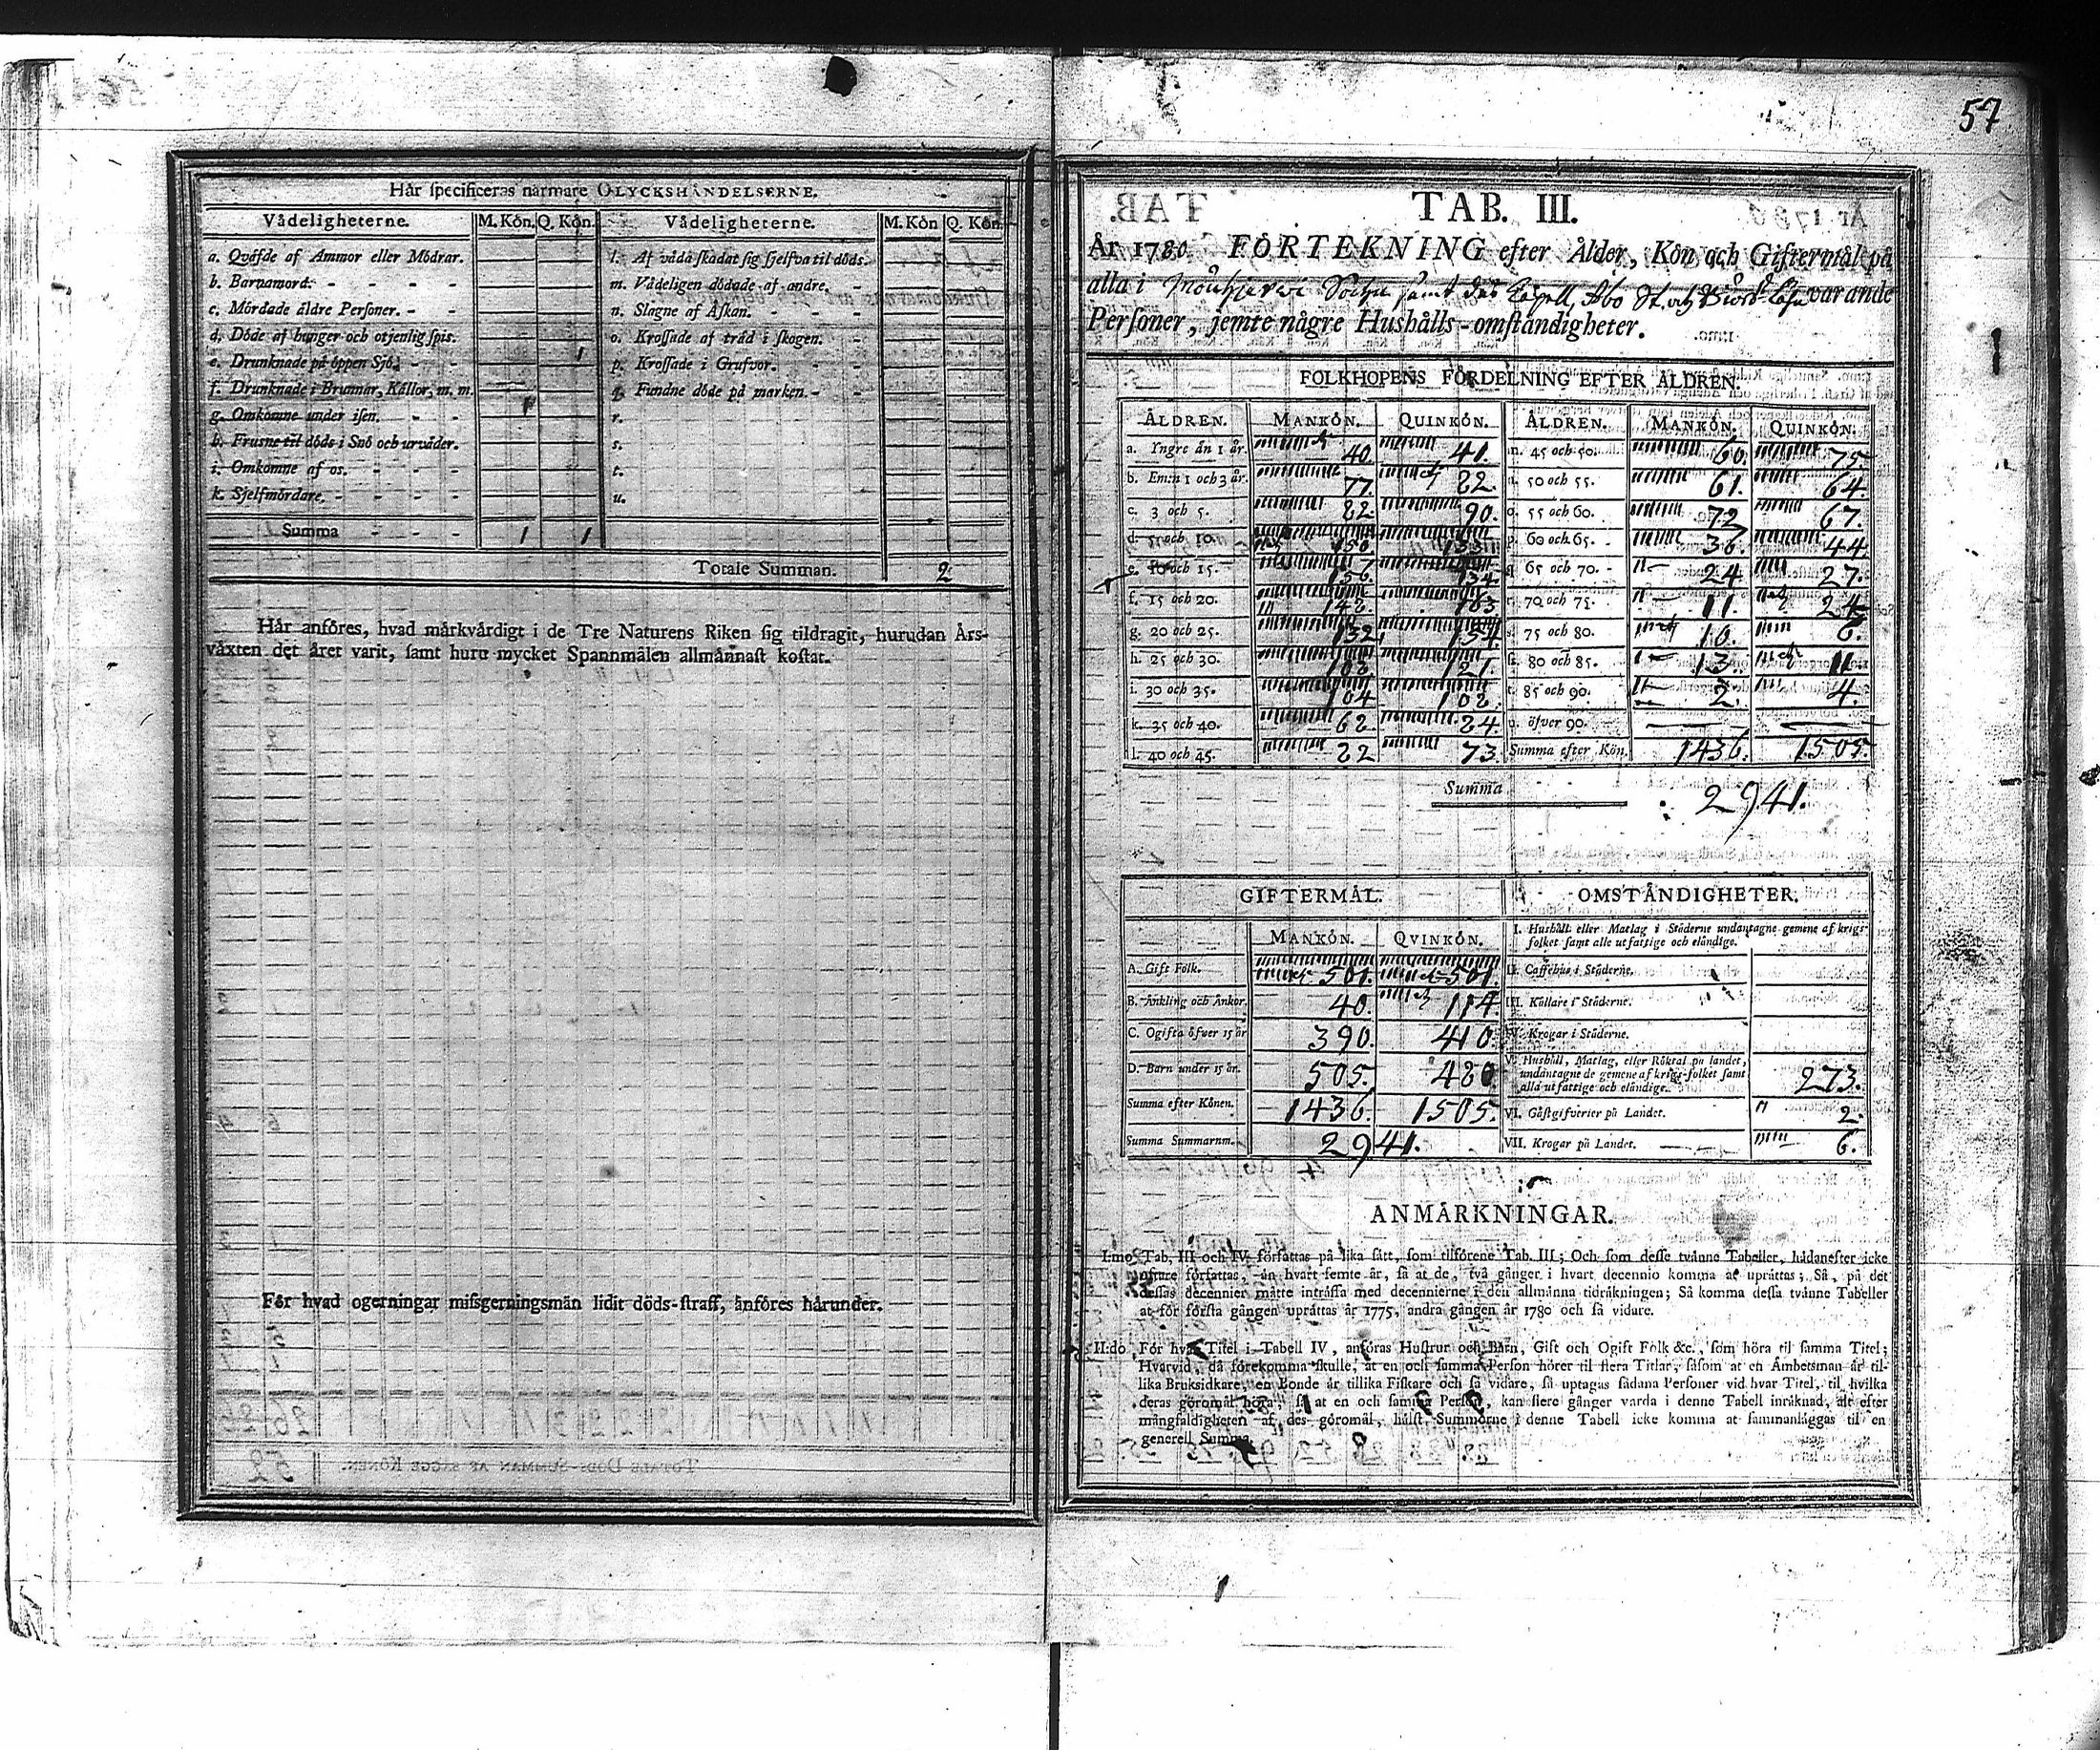 Här specificeras närmare OLYCKSHÄNDELSERNE.
Vådeligheterne. M. Kön. Q. Kön. Vådeligheterne. M. Kön Q. Kön
a. Qväfde af Ammor eller Mödrar. l. Af våda skadat sig sjelfva til döds.
b. Barnamord. m. Vådeligen dödade af andre.
c. Mördade äldre Personer. n. Slagne af Åskan.
d. Döde af hunger och otjenlig spis. o. Krossade af träd i skogen.
e. Drunknade på öppen Sjö. 1 p. Krossade i Grufvor.
f. Drunknade i Brunnar, Källor, m. m. q. Fundne döde på marken.
g. Omkomne under isen. 1 r.
h. Frusne til döds i Snö och urväder. s.
i. Omkomne af os. t.
k. Sjelfmördare. u.
Summa 1 1
Totale Summan. 2
Här anföres, hvad märkvärdigt i de Tre Naturens Riken sig tildragit, hurudan Års-
växten det året varit, samt huru mycket Spannmålen allmännast kostat.
För hvad ogerningar missgerningsmän lidit döds-straff, anföres härunder.
57
TAB. III.
År 1780. FÖRTEKNING efter Ålder, Kön och Giftermål på
alla i Socken samt Capell, Åbo varande
Personer, jemte någre Hushålls-omständigheter.
FOLKHOPENS FÖRDELNING EFTER ÅLDREN.
ÅLDREN. MANKÖN. QUINKÖN. ÅLDREN. MANKÖN. QUINKÖN.
a. Yngre än 1 år. 40. 41. m. 45 och 50. 60. 75.
b. Em:n 1 och 3 år. 77. 82. n. 50 och 55. 61. 64.
c. 3 och 5. 82. 90. o. 55 och 60. 72 67.
d. 5 och 10. 150. 133 p. 60 och 65. 36. 44
e. 10 och 15. 156. 134. q. 65 och 70. 24 27.
f. 15 och 20. 148. 163 r. 70 och 75. 11. 24
g. 20 och 25. 132. 154. s. 75 och 80. 16. 6.
h. 25 och 30. 108. 121. 80 och 85. 13. 11
i. 30 och 35. 104 108. t. 85 och 90. 2. 4.
k. 35 och 40. 62 84. u. öfver 90.
l. 40 och 45. 82 73. Summa efter Kön. 1436. 1505
Summa 2941.
GIFTERMÅL. OMSTÄNDIGHETER.
MANKÖN. QVINKÖN. I. Hushåll eller Matlag i Städerne undantagne gemene af krigs-
folket samt alle utfattige och eländige.
A. Gift Folk. 501. 501. II. Caffehus i Städerne.
B. Änkling och Änkor. 40. 114. III. Källare i Städerne.
C. Ogifta öfver 15 år 390. 410 IV. Krogar i Städerne.
D. Barn under 15 år. 505. 480 V. Hushåll, Matlag, eller Röktal på landet,
undantagne de gemene af krigs-folket samt
alla utfattige och eländige. 273.
Summa efter Könen. 1436. 1505. VI. Gästgifverier på Landet. 2.
Summa Summarum. 2941. VII. Krogar på Landet. 6.
ANMÄRKNINGAR.
I:mo Tab. III och IV författas på lika sätt, som tilförene Tab. III; Och som desse tvänne Tabeller, hädanefter icke
oftare författas, än hvart femte år, så at de, två gånger i hvart decennio komma at uprättas; Så, på det
dessas decennier måtte inträffa med decennierne i den allmänna tidräkningen; Så komma dessa tvänne Tabeller
at för första gången uprättas år 1775, andra gången år 1780 och så vidare.
II:do För hvar Titel i Tabell IV, anföras Hustrur och Barn, Gift och Ogift Folk &c., som höra til samma Titel;
Hvarvid, då förekomma skulle, at en och samma Person hörer til flera Titlar, såsom at en Ämbetsman är til-
lika Bruksidkare, en Bonde är tillika Fiskare och så vidare, så uptagas sådana Personer vid hvar Titel, til hvilka
deras göromål höra, så at en och samma Person, kan flere gånger varda i denne Tabell inräknad, alt efter
mångfaldigheten af des göromål, hälst Summorne i denne Tabell icke komma at sammanläggas til en
generell Summa.